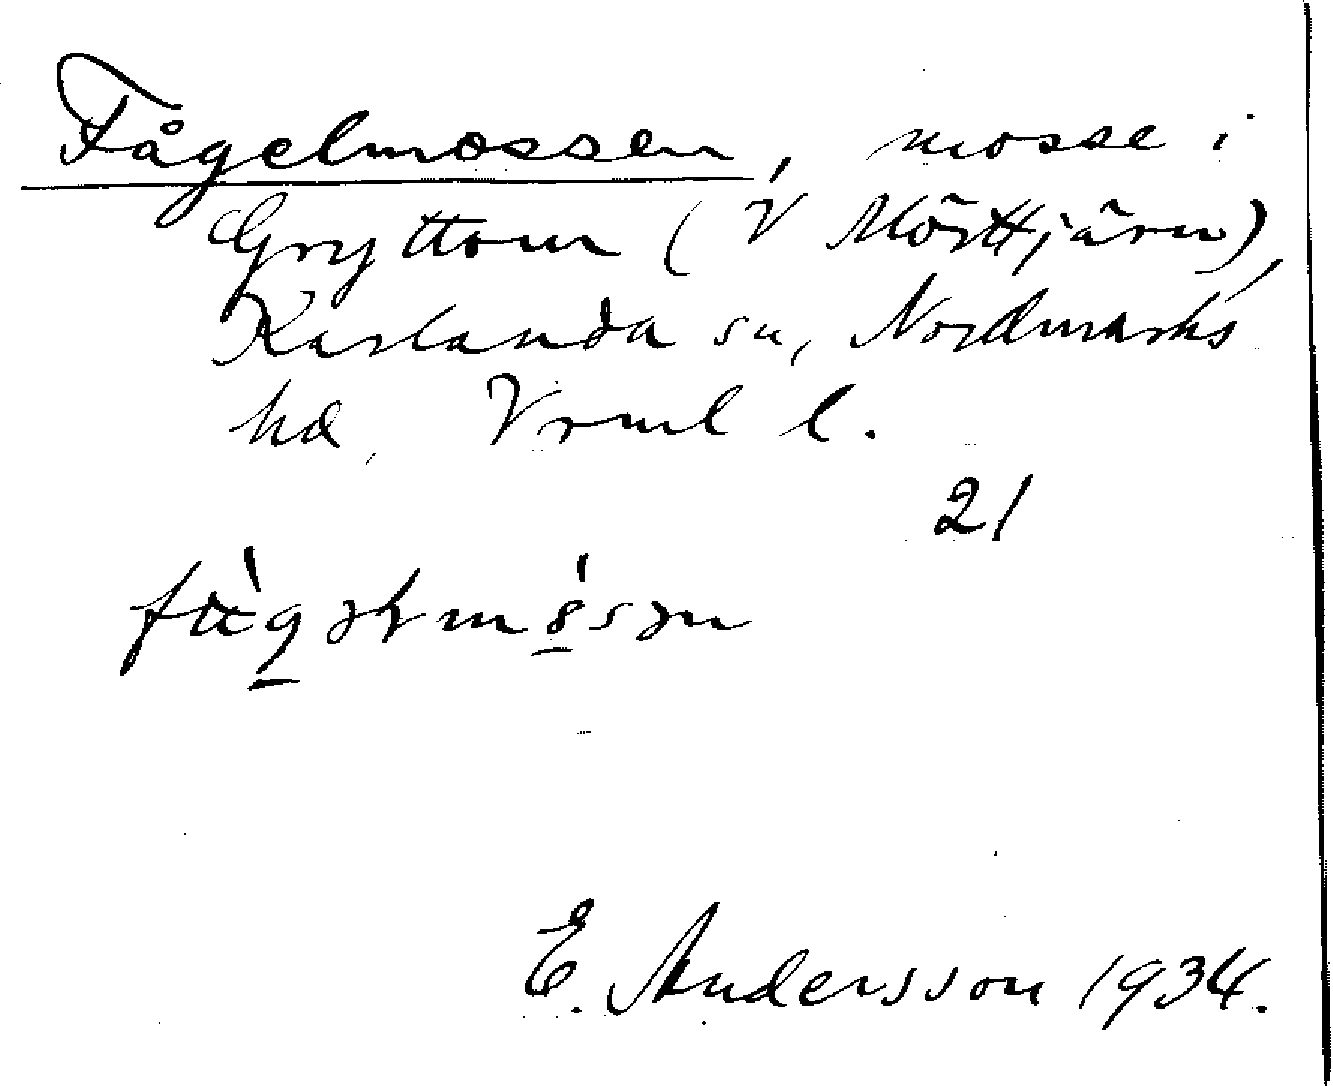 Fågelmossen, mosse i
Gryttom (V Mörttjärn),
Karlanda sn, Nordmarks
hd, Vrml l.
21
E. Andersson 1934.